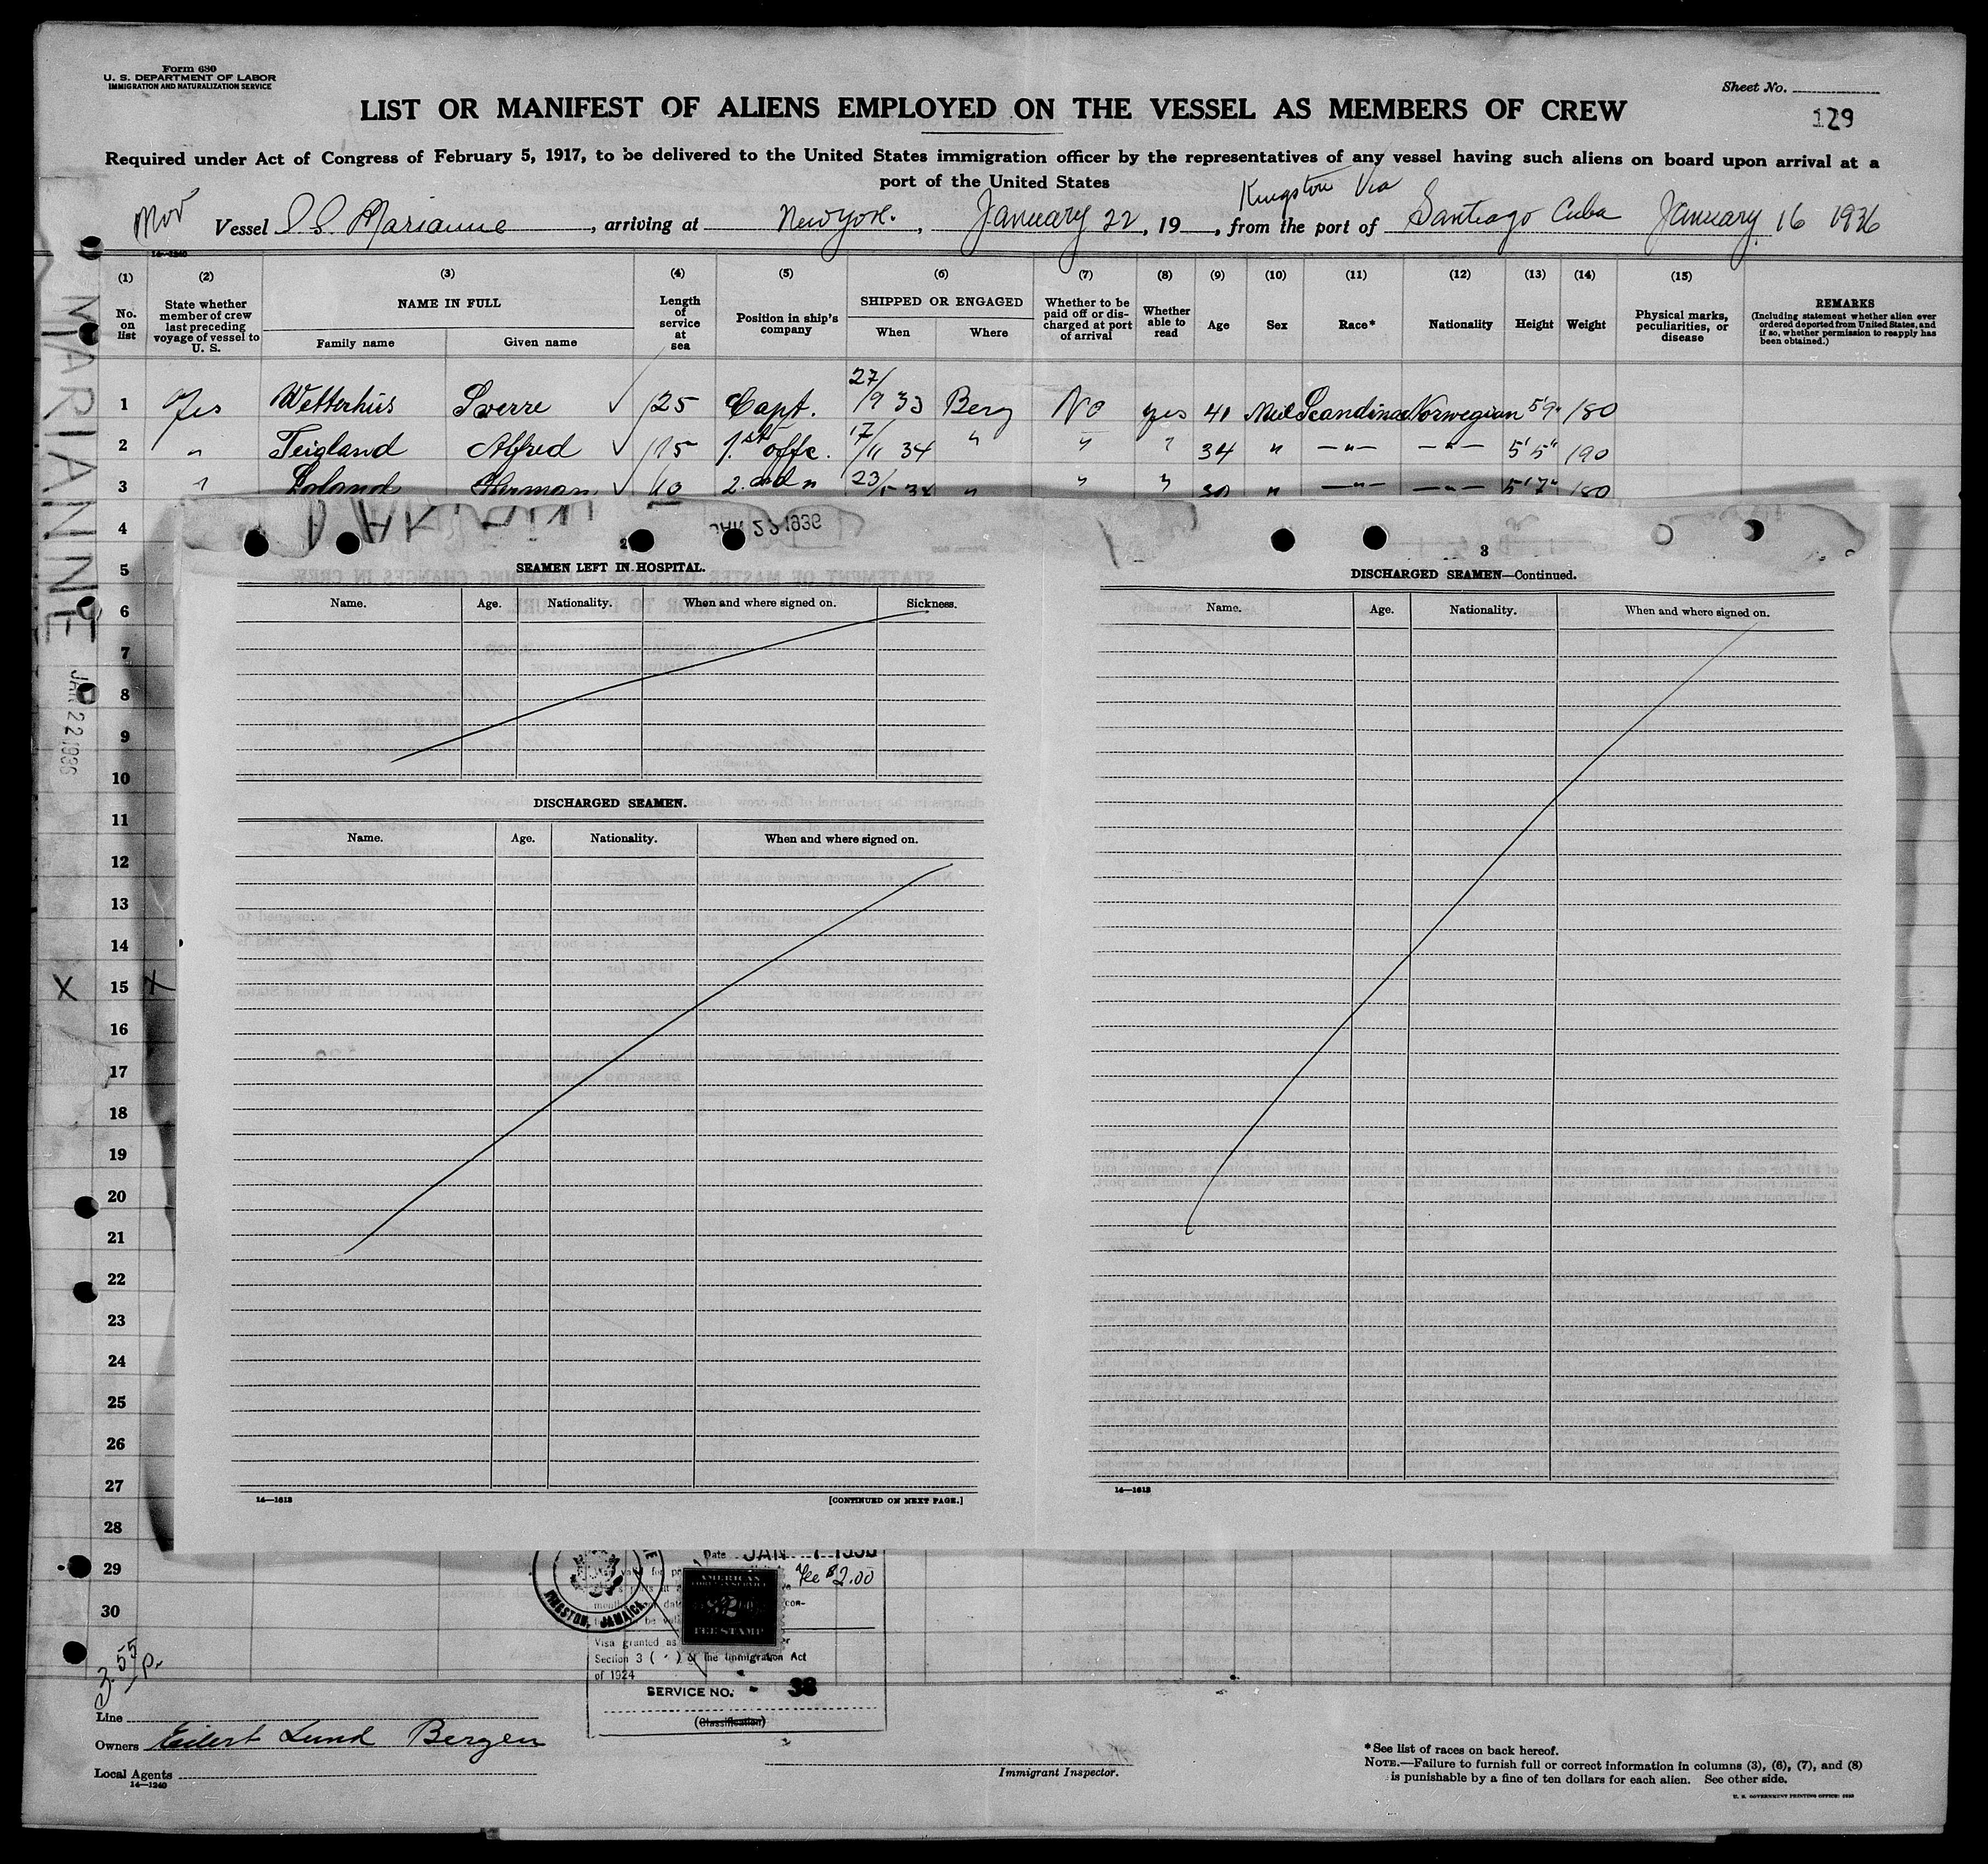 Form 680
U. S. DEPARTMENT OF LABOR
IMMIGRATION AND NATURALIZATION SERVICE
Sheet No.
129
LIST OR MANIFEST OF ALIENS EMPLOYED ON THE VESSEL AS MEMBERS OF CREW
Required under Act of Congress of February 5, 1917, to be delivered to the United States immigration officer by the representatives of any vessel having such aliens on board upon arrival at a
port of the United States
Kingston Via
Vessel S.S. Marianne, arriving at New York., January 22, 19, from the port of Santiago Cuba January 16 1936
14-1240
(1) (2) (3) (4) (5) (6) (7) (8) (9) (10) (11) (12) (13) (14) (15)
No. on list
State whether member of crew last preceding voyage of vessel to U. S.
NAME IN FULL
Family name
Given name
Length of service at sea
Position in ship's company
SHIPPED OR ENGAGED
When
Where
Whether to be paid off or discharged at port of arrival
Whether able to read
Age
Sex
Race*
Nationality
Height
Weight
Physical marks, peculiarities, or disease
REMARKS
(Including statement whether alien ever ordered deported from United States, and if so, whether permission to reapply has been obtained.)
1 Yes Wetterhus Sverre 25 Capt. 27/9 33 Berg No yes 41 Norwegian 5'9" 180
2 " Teigland Alfred 15 1.st offc. 17/11 34 " " " 34 " —"— —"— 5'5" 190
3 " 10 2. " 23/ " " " " —"— —"— 5'7" 180
4
5
6
7
8
9
10
11
12
13
14
X 15 X
16
17
18
19
20
21
22
23
24
25
26
27
28
29
30
MARIANNE
JAN 22 1936
JAN 22 1936
2
SEAMEN LEFT IN HOSPITAL.
Name. Age. Nationality. When and where signed on. Sickness.
DISCHARGED SEAMEN.
Name. Age. Nationality. When and where signed on.
14—1613
[CONTINUED ON NEXT PAGE.]
3
DISCHARGED SEAMEN—Continued.
Name. Age. Nationality. When and where signed on.
14—1613
KINGSTON, JAMAICA
Date JAN
Fee $2.00
AMERICAN
FOREIGN SERVICE
FEE STAMP
Visa granted as
Section 3 ( ) of the Immigration Act
of 1924
SERVICE NO. - 38
(Classification)
3.55 p.
Line
Owners Eilert Lund Bergen
Local Agents
14—1240
Immigrant Inspector.
*See list of races on back hereof.
NOTE.—Failure to furnish full or correct information in columns (3), (6), (7), and (8)
is punishable by a fine of ten dollars for each alien. See other side.